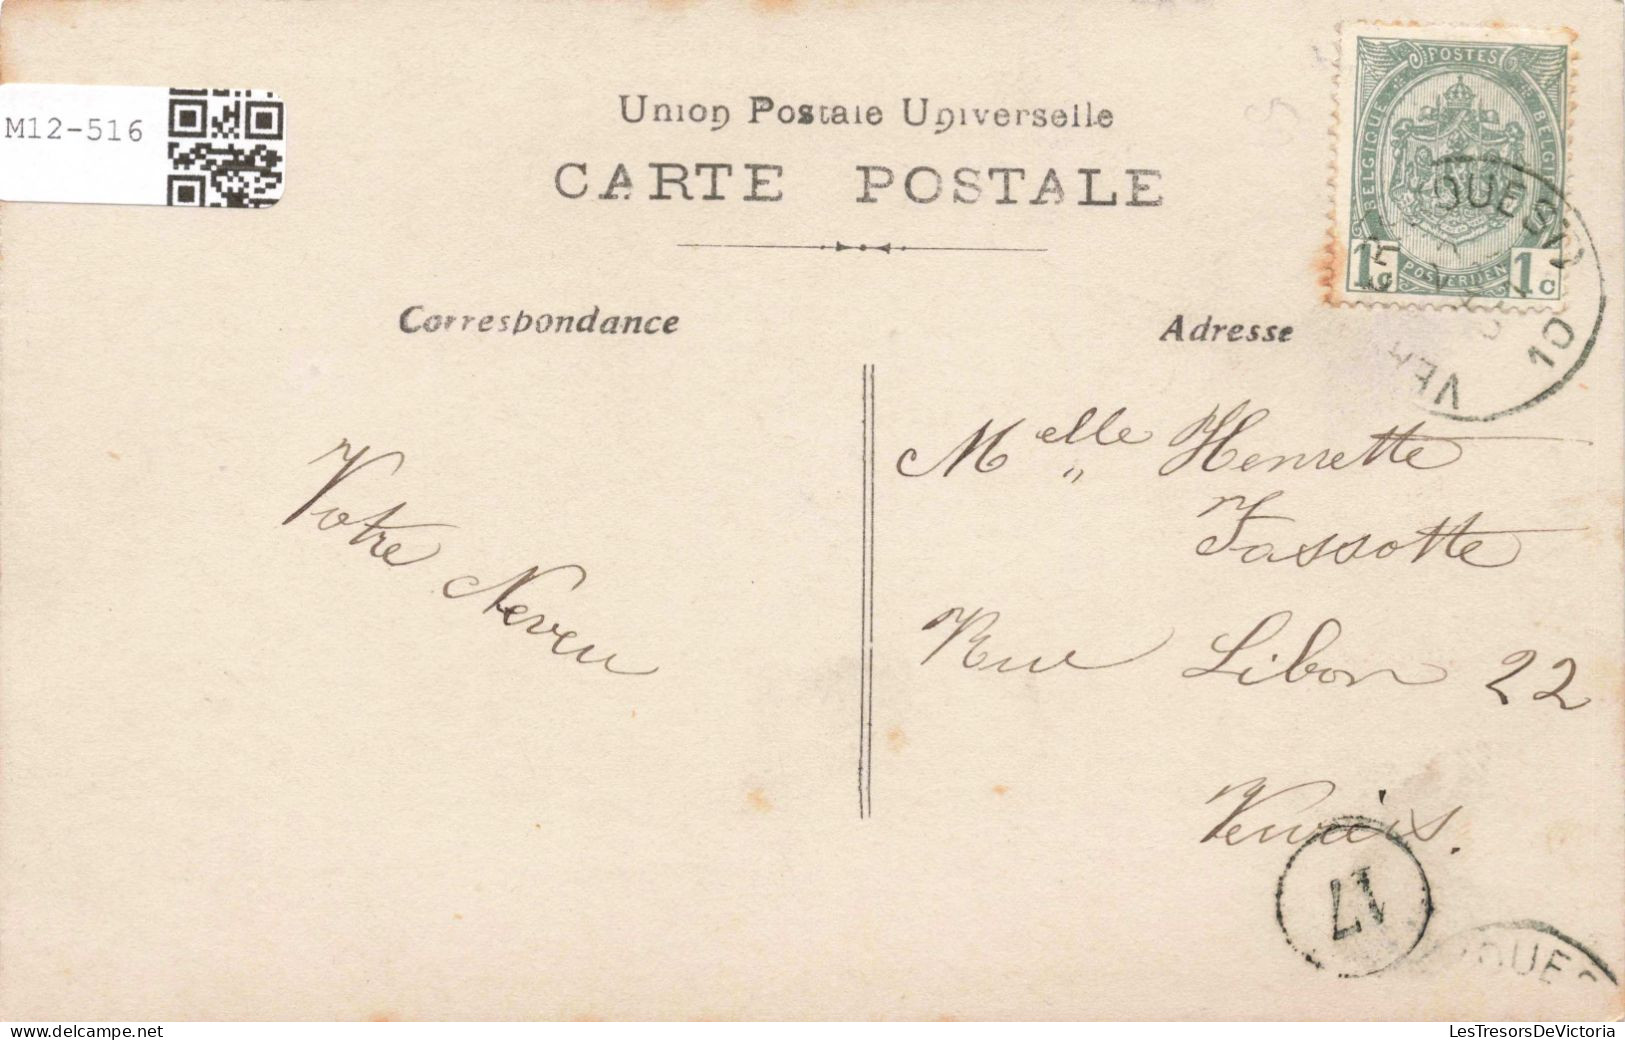 M12-516
Union Postale Universelle
CARTE POSTALE
POSTES
BELGIQUE
BELGIE
POSTERIJEN
1c
1c
OUEST
10
VER
Correspondance
Adresse
Votre Neveu
Melle Henriette
Fassotte
Rue Libon 22
Verviers.
17
OUES
LesTresorsDeVictoria
delcampe.net